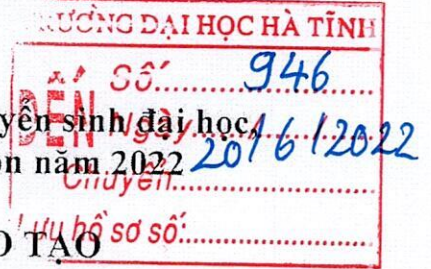 TRƯỜNG ĐẠI HỌC HÀ TĨNH
ĐẾN
Số: 946
yển sinh đại học,
Ngày 20/6/2022
on năm 2022
Chuyển:
Lưu hồ sơ số:
O TẠO